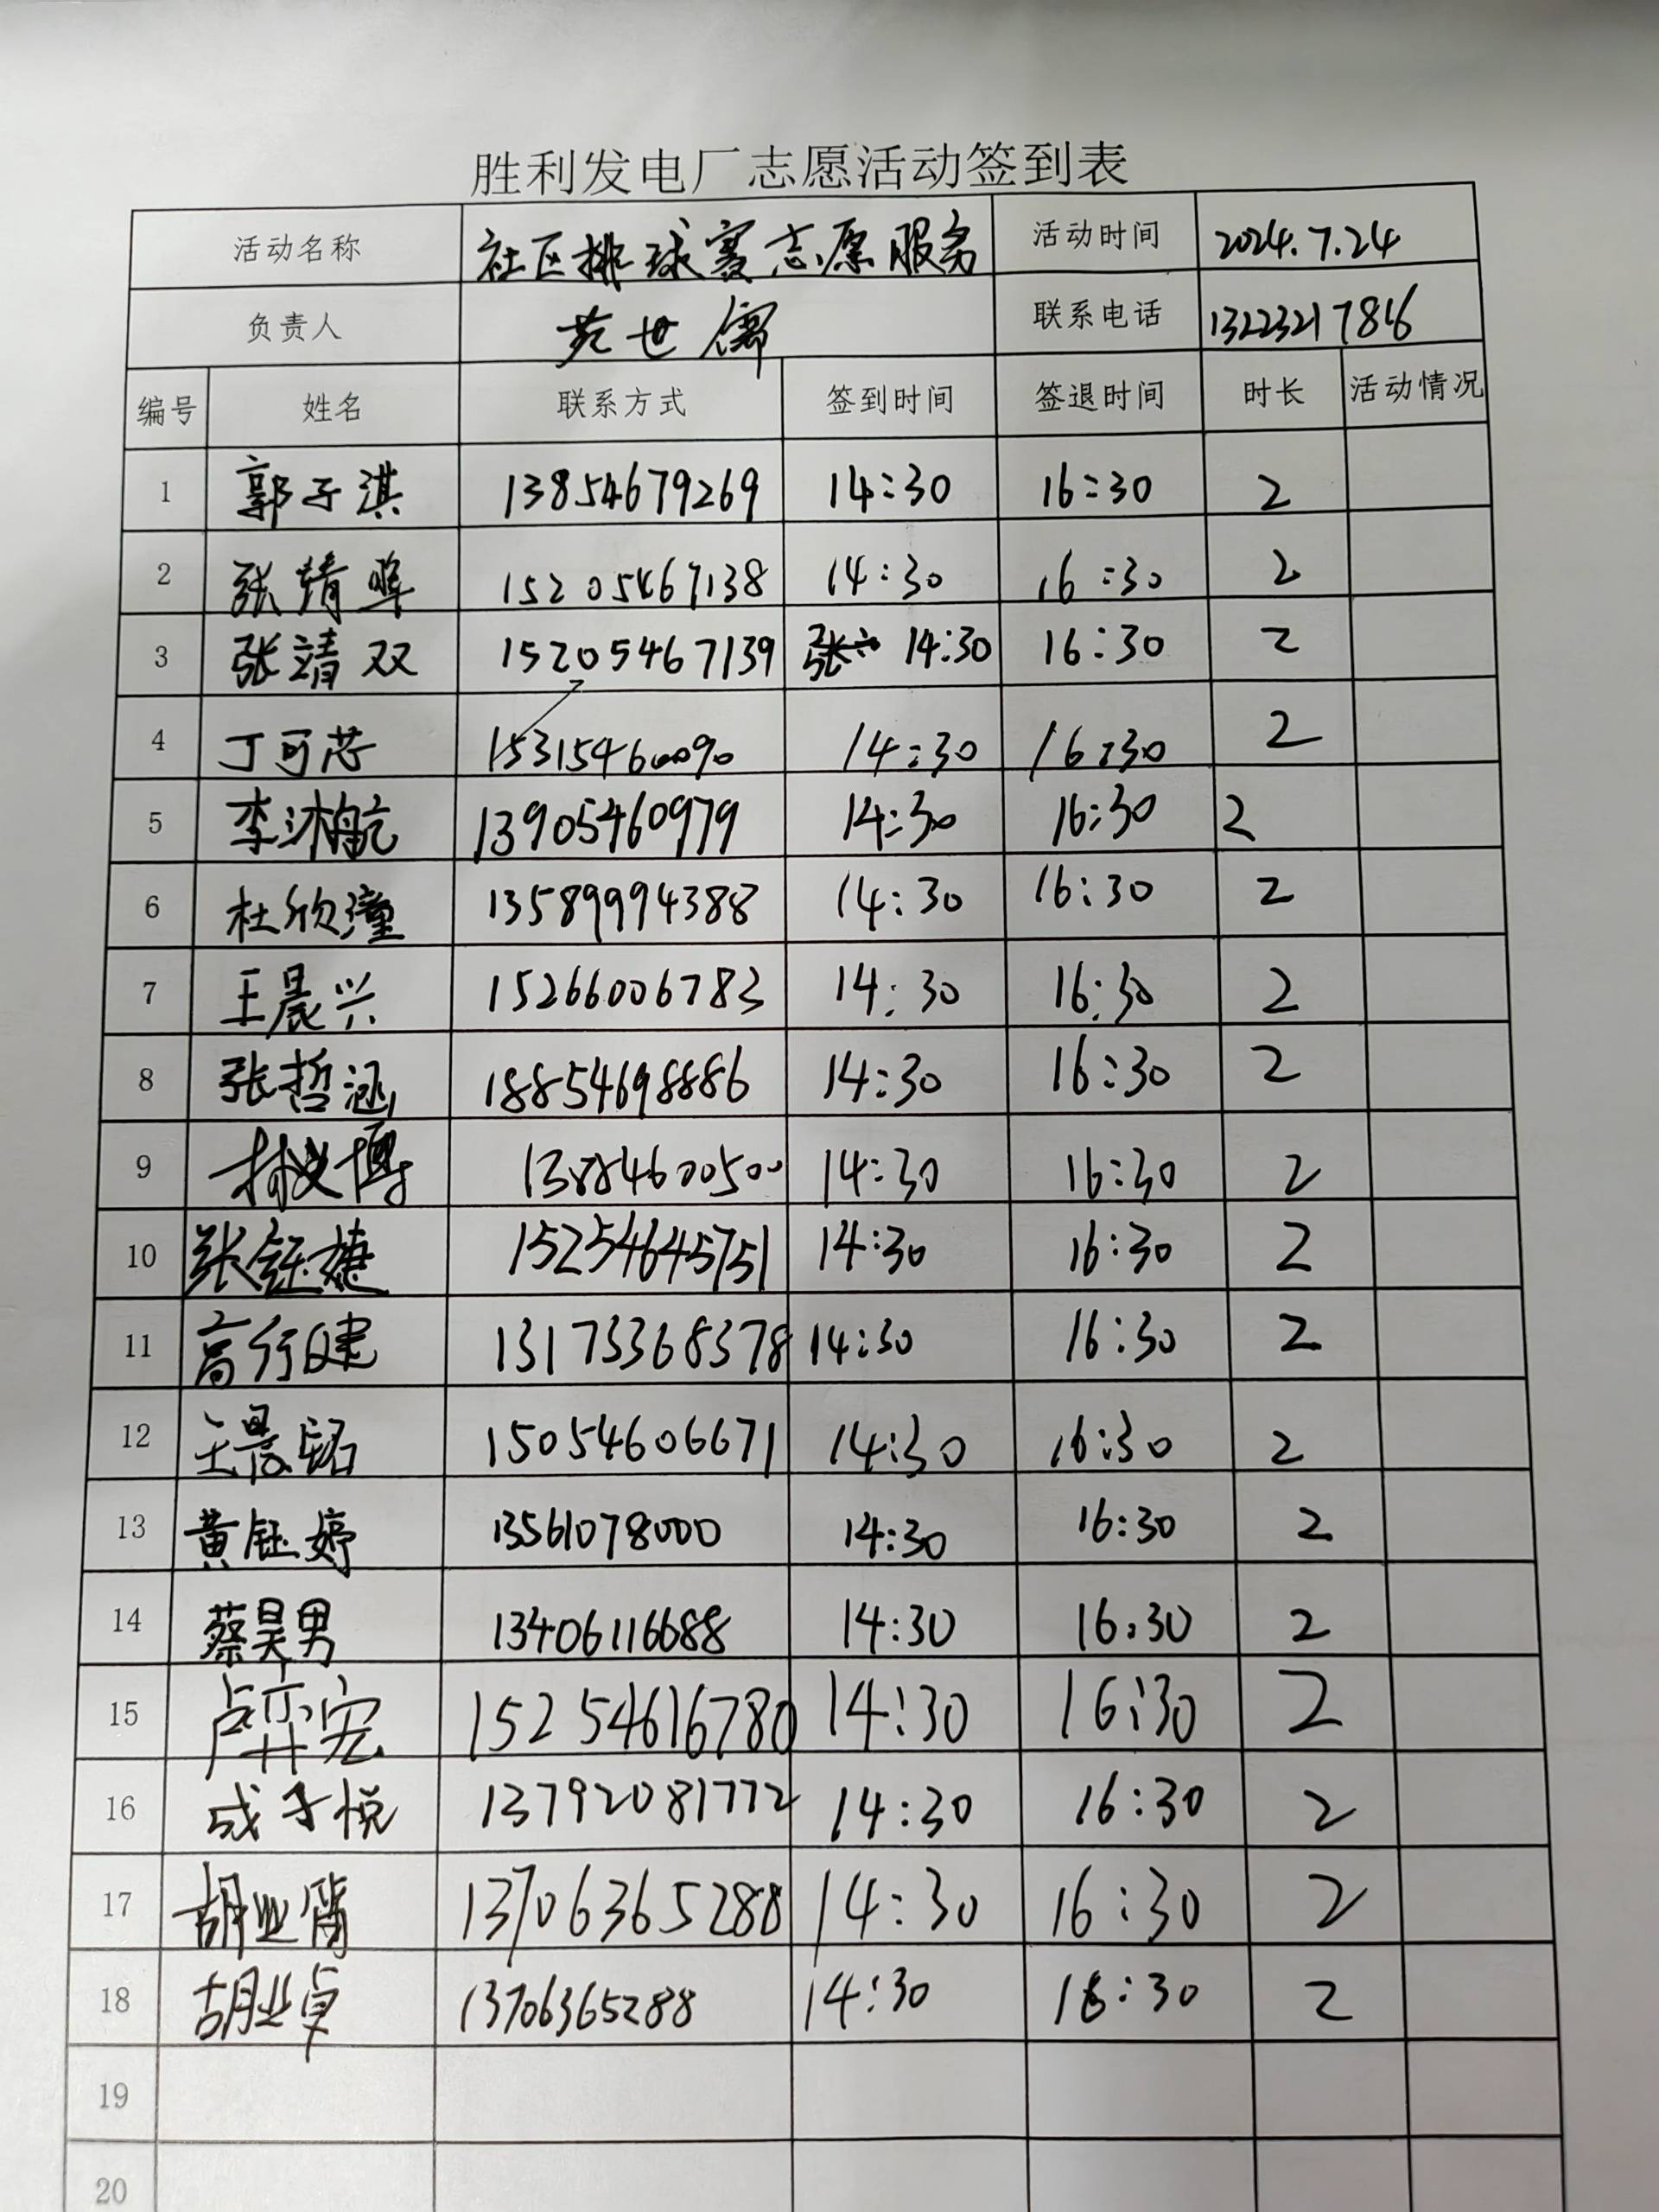 胜利发电厂志愿活动签到表
活动名称 社区排球赛志愿服务 活动时间 2024.7.24
负责人 范世儒 联系电话 13223217816
编号 姓名 联系方式 签到时间 签退时间 时长 活动情况
1 郭子淇 13854679269 14:30 16:30 2
2 张靖晖 15205467138 14:30 16:30 2
3 张靖双 15205467139 张 14:30 16:30 2
4 丁可芯 15315460090 14:30 16:30 2
5 李沐航 13905460979 14:30 16:30 2
6 杜欣潼 13589994388 14:30 16:30 2
7 王晨兴 15266006783 14:30 16:30 2
8 张哲涵 18854698886 14:30 16:30 2
9 13884600500 14:30 16:30 2
10 张钰婕 15254645751 14:30 16:30 2
11 高行健 13173368378 14:30 16:30 2
12 王晨铭 15054606671 14:30 16:30 2
13 黄钰婷 13561078000 14:30 16:30 2
14 蔡昊男 13406116688 14:30 16:30 2
15 卢弈宏 15254616780 14:30 16:30 2
16 成子悦 13792081772 14:30 16:30 2
17 胡业 13706365288 14:30 16:30 2
18 胡业卓 13706365288 14:30 16:30 2
19
20